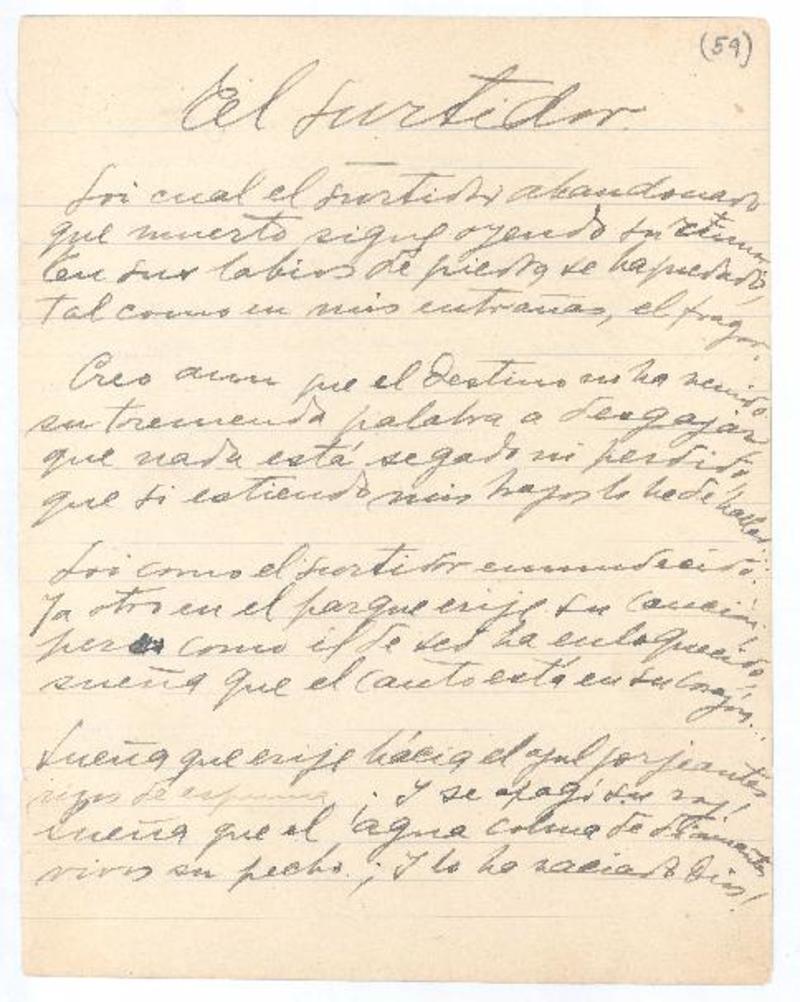 (59)
El surtidor
Soi cual el surtidor abandonado
que muerto sigue oyendo su rumor.
En sus labios de piedra se ha quedado,
tal como en mis entrañas, el fragor.
Creo aun que el Destino no ha venido
su tremenda palabra a desgajar
que nada está segado ni perdido,
que si estiendo mis brazos lo he de hallar...
Soi como el surtidor enmudecido.
Ya otro en el parque erije su canción;
pero como él de sed ha enloquecido,
sueña que el canto está en su corazón...
Sueña que erije hácia el azul gorjeantes
rizos de espuma. ¡Y se apagó su voz!
Sueña que el agua colma de diamantes
vivos su pecho. ¡Y lo ha vaciado Dios!